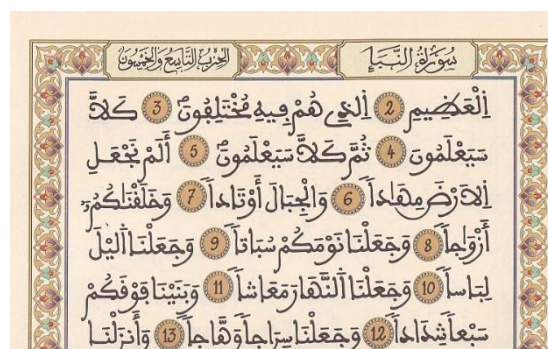 سُورَةُ النَّبَإِ
الحِزْبُ التَّاسِعُ وَالخَمْسُونَ
اِ۬لْعَظِيمِ 2 اِ۬لذِے هُمْ فِيهِ مُخْتَلِفُونَ 3 كَلاَّ
سَيَعْلَمُونَ 4 ثُمَّ كَلاَّ سَيَعْلَمُونَ 5 أَلَمْ نَجْعَلِ
اِ۬لَارْضَ مِهَٰداٗ 6 وَالْجِبَالَ أَوْتَاداٗ 7 وَخَلَقْنَٰكُمُۥٓ
أَزْوَٰجاٗ 8 وَجَعَلْنَا نَوْمَكُمْ سُبَاتاٗ 9 وَجَعَلْنَا اَ۬ليْلَ
لِبَاساٗ 10 وَجَعَلْنَا اَ۬لنَّهَارَ مَعَاشاٗ 11 وَبَنَيْنَا فَوْقَكُمْ
سَبْعاٗ شِدَاداٗ 12 وَجَعَلْنَا سِرَاجاٗ وَهَّاجاٗ 13 وَأَنزَلْنَا